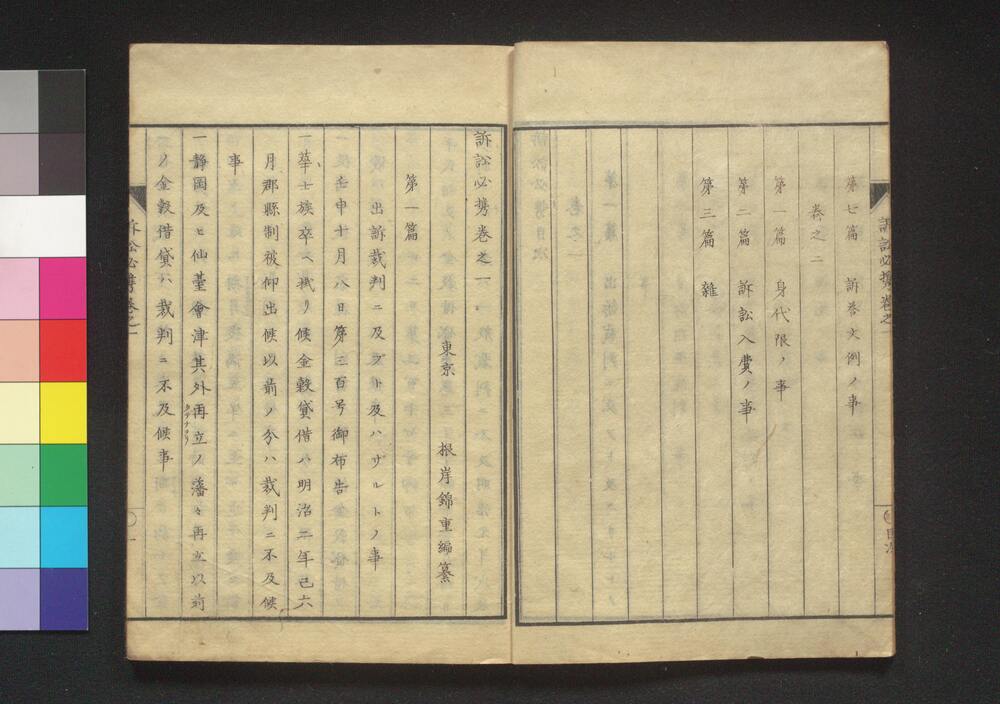 第七篇 訴答文例ノ事
卷之二
第一篇 身代限ノ事
第二篇 訴訟入費ノ事
第三篇 雜
訴訟必携卷之一
訴訟必携卷之一
東京 根岸錦重編纂
第一篇
出訴裁判ニ及ブト及ハザルトノ事
壬申十月八日第三百号御布告
一華士族卒ヘ拭リ候金穀貸借ハ明治二年己六
月郡縣制被仰出候以前ノ分ハ裁判ニ不及候
事
一静岡及ヒ仙䑓會津其外再立ノ藩々再立以前
ノ金穀借貸ハ裁判ニ不及候事
訴訟必携卷之一